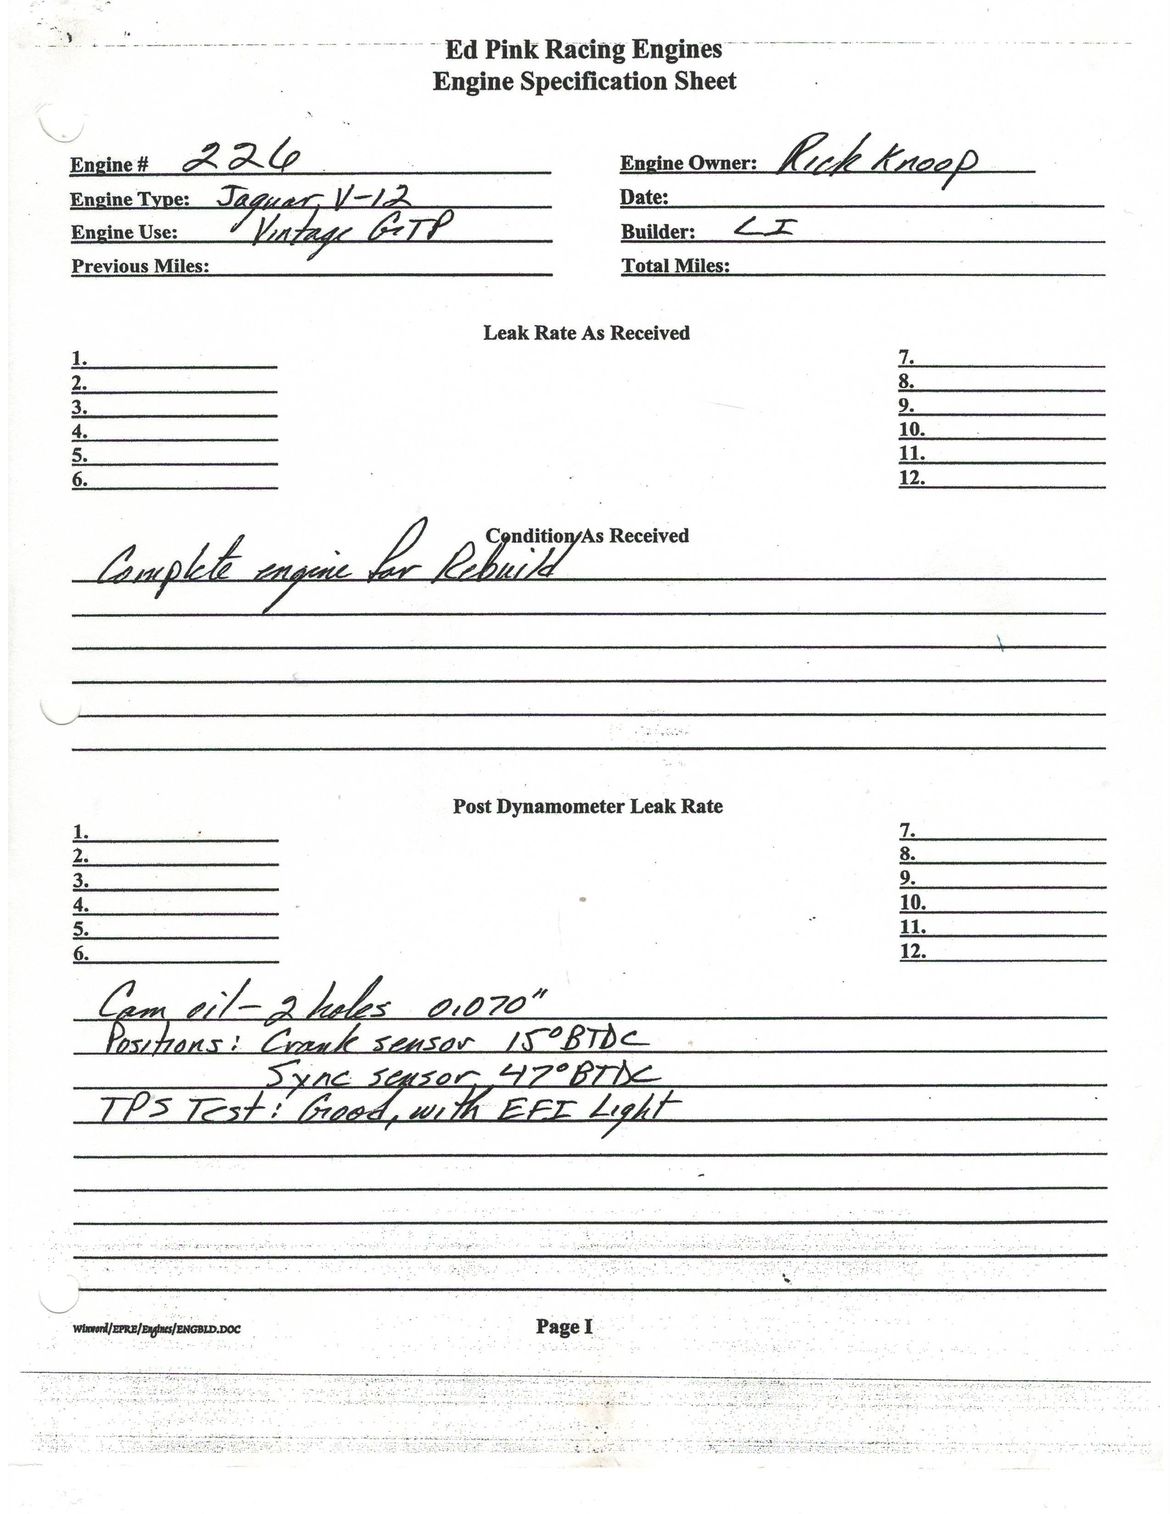 Ed Pink Racing Engines
Engine Specification Sheet
Engine # 226 Engine Owner: Rick Knoop
Engine Type: Jaguar V-12 Date:
Engine Use: Vintage GTP Builder: LI
Previous Miles: Total Miles:
Leak Rate As Received
1. 7.
2. 8.
3. 9.
4. 10.
5. 11.
6. 12.
Condition As Received
Complete engine for Rebuild
Post Dynamometer Leak Rate
1. 7.
2. 8.
3. 9.
4. 10.
5. 11.
6. 12.
Cam oil - 2 holes 0.070"
Positions: Crank sensor 15° BTDC
Sync sensor 47° BTDC
TPS Test: Good, with EFI Light
Winword/EPRE/Engines/ENGBLD.DOC Page I